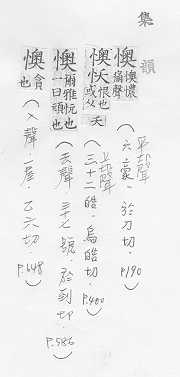 集韻
懊 懊憹痛聲（平聲．六豪．於刀切．P190）
懊 㤇 恨也或从夭（上聲．三十二皓．烏皓切．P.400）
懊 爾雅忨也一曰頑也（去聲．三十七號．於到切．P.586）
懊 貪也（入聲．一屋．乙六切．P.648）